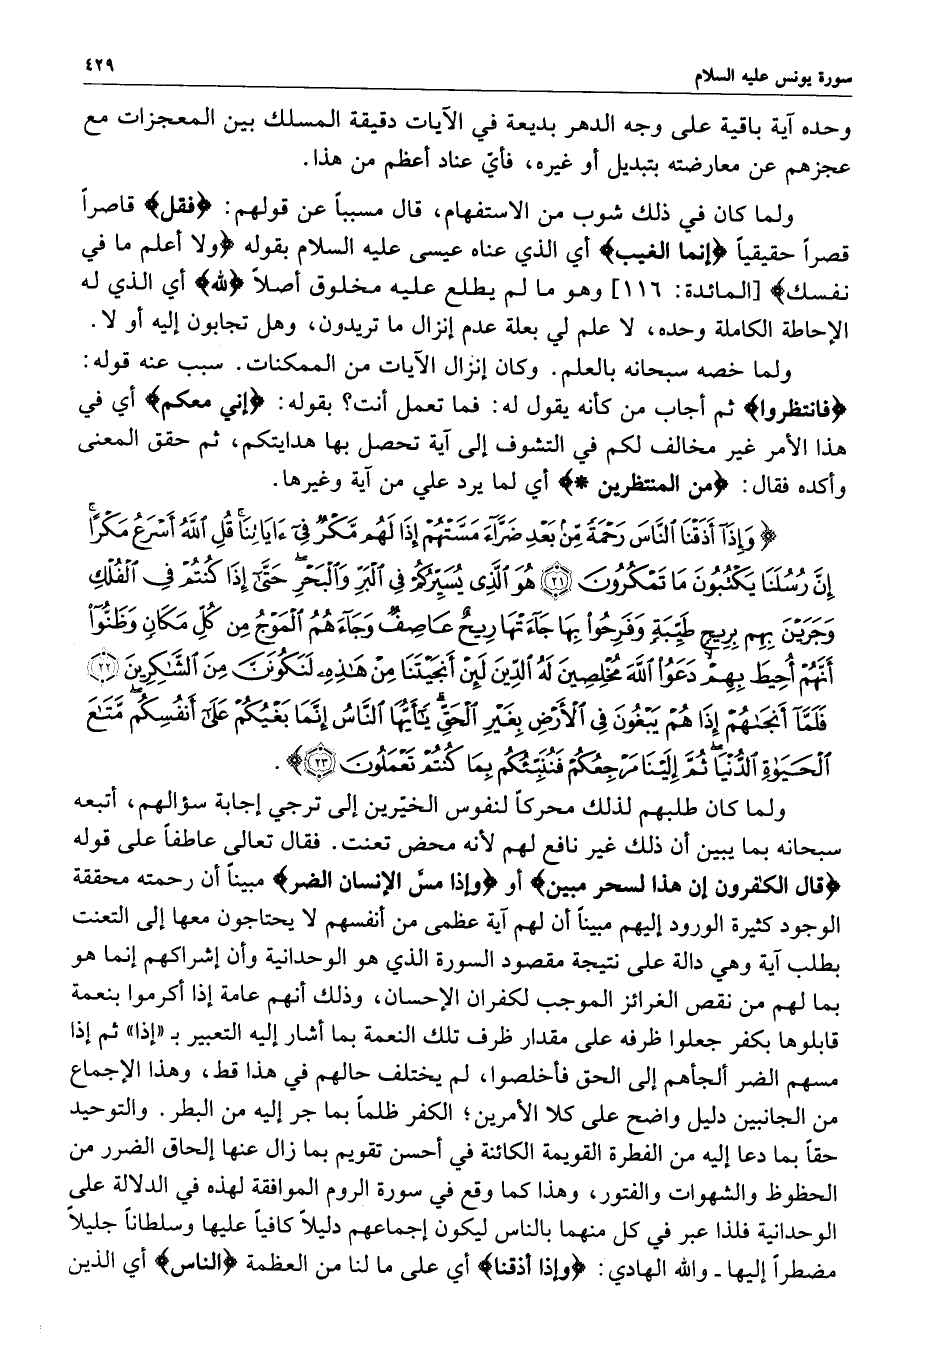 سورة يونس عليه السلام
٤٢٩
وحده آية باقية على وجه الدهر بديعة في الآيات دقيقة المسلك بين المعجزات مع
عجزهم عن معارضته بتبديل أو غيره، فأيّ عناد أعظم من هذا.
ولما كان في ذلك شوب من الاستفهام، قال مسبباً عن قولهم: ﴿فقل﴾ قاصراً
قصراً حقيقياً ﴿إنما الغيب﴾ أي الذي عناه عيسى عليه السلام بقوله ﴿ولا أعلم ما في
نفسك﴾ [المائدة: ١١٦] وهو ما لم يطلع عليه مخلوق أصلاً ﴿لله﴾ أي الذي له
الإحاطة الكاملة وحده، لا علم لي بعلة عدم إنزال ما تريدون، وهل تجابون إليه أو لا.
ولما خصه سبحانه بالعلم. وكان إنزال الآيات من الممكنات. سبب عنه قوله:
﴿فانتظروا﴾ ثم أجاب من كأنه يقول له: فما تعمل أنت؟ بقوله: ﴿إني معكم﴾ أي في
هذا الأمر غير مخالف لكم في التشوف إلى آية تحصل بها هدايتكم، ثم حقق المعنى
وأكده فقال: ﴿من المنتظرين *﴾ أي لما يرد علي من آية وغيرها.
﴿وَإِذَآ أَذَقۡنَا ٱلنَّاسَ رَحۡمَةٗ مِّنۢ بَعۡدِ ضَرَّآءَ مَسَّتۡهُمۡ إِذَا لَهُم مَّكۡرٞ فِيٓ ءَايَاتِنَاۚ قُلِ ٱللَّهُ أَسۡرَعُ مَكۡرًاۚ
إِنَّ رُسُلَنَا يَكۡتُبُونَ مَا تَمۡكُرُونَ ﴿٢١﴾ هُوَ ٱلَّذِي يُسَيِّرُكُمۡ فِي ٱلۡبَرِّ وَٱلۡبَحۡرِۖ حَتَّىٰٓ إِذَا كُنتُمۡ فِي ٱلۡفُلۡكِ
وَجَرَيۡنَ بِهِم بِرِيحٖ طَيِّبَةٖ وَفَرِحُواْ بِهَا جَآءَتۡهَا رِيحٌ عَاصِفٞ وَجَآءَهُمُ ٱلۡمَوۡجُ مِن كُلِّ مَكَانٖ وَظَنُّوٓاْ
أَنَّهُمۡ أُحِيطَ بِهِمۡ دَعَوُاْ ٱللَّهَ مُخۡلِصِينَ لَهُ ٱلدِّينَ لَئِنۡ أَنجَيۡتَنَا مِنۡ هَٰذِهِۦ لَنَكُونَنَّ مِنَ ٱلشَّٰكِرِينَ ﴿٢٢﴾
فَلَمَّآ أَنجَىٰهُمۡ إِذَا هُمۡ يَبۡغُونَ فِي ٱلۡأَرۡضِ بِغَيۡرِ ٱلۡحَقِّۗ يَٰٓأَيُّهَا ٱلنَّاسُ إِنَّمَا بَغۡيُكُمۡ عَلَىٰٓ أَنفُسِكُمۖ مَّتَٰعَ
ٱلۡحَيَوٰةِ ٱلدُّنۡيَاۖ ثُمَّ إِلَيۡنَا مَرۡجِعُكُمۡ فَنُنَبِّئُكُم بِمَا كُنتُمۡ تَعۡمَلُونَ ﴿٢٣﴾﴾.
ولما كان طلبهم لذلك محركاً لنفوس الخيّرين إلى ترجي إجابة سؤالهم، أتبعه
سبحانه بما يبين أن ذلك غير نافع لهم لأنه محض تعنت. فقال تعالى عاطفاً على قوله
﴿قال الكٰفرون إن هذا لسحر مبين﴾ أو ﴿وإذا مسَّ الإنسان الضر﴾ مبيناً أن رحمته محققة
الوجود كثيرة الورود إليهم مبيناً أن لهم آية عظمى من أنفسهم لا يحتاجون معها إلى التعنت
بطلب آية وهي دالة على نتيجة مقصود السورة الذي هو الوحدانية وأن إشراكهم إنما هو
بما لهم من نقص الغرائز الموجب لكفران الإحسان، وذلك أنهم عامة إذا أكرموا بنعمة
قابلوها بكفر جعلوا ظرفه على مقدار ظرف تلك النعمة بما أشار إليه التعبير بـ «إذا» ثم إذا
مسهم الضر ألجأهم إلى الحق فأخلصوا، لم يختلف حالهم في هذا قط، وهذا الإجماع
من الجانبين دليل واضح على كلا الأمرين؛ الكفر ظلماً بما جر إليه من البطر. والتوحيد
حقاً بما دعا إليه من الفطرة القويمة الكائنة في أحسن تقويم بما زال عنها إلحاق الضرر من
الحظوظ والشهوات والفتور، وهذا كما وقع في سورة الروم الموافقة لهذه في الدلالة على
الوحدانية فلذا عبر في كل منهما بالناس ليكون إجماعهم دليلاً كافياً عليها وسلطاناً جليلاً
مضطراً إليها ـ والله الهادي: ﴿وإذا أذقنا﴾ أي على ما لنا من العظمة ﴿الناس﴾ أي الذين